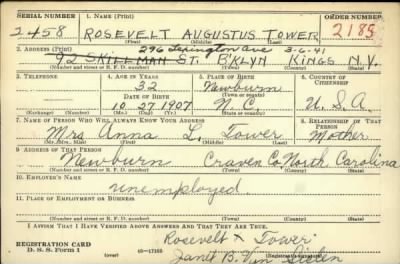 SERIAL NUMBER 1. NAME (Print) ORDER NUMBER
2458 ROSEVELT AUGUSTUS TOWER 2185
(First) (Middle) (Last)
2. ADDRESS (Print) 296 Lexington ave 3-6-41
92 SKILLMAN ST. B'KLYN KINGS N.Y.
(Number and street or R. F. D. number) (Town) (County) (State)
3. TELEPHONE 4. AGE IN YEARS 5. PLACE OF BIRTH 6. COUNTRY OF CITIZENSHIP
32 Newburn
DATE OF BIRTH (Town or county)
10-27-1907 N.C. U.S.A.
(Exchange) (Number) (Mo.) (Day) (Yr.) (State or country)
7. NAME OF PERSON WHO WILL ALWAYS KNOW YOUR ADDRESS 8. RELATIONSHIP OF THAT PERSON
Mrs Anna L. Tower Mother
(Mr., Mrs., Miss) (First) (Middle) (Last)
9. ADDRESS OF THAT PERSON
Newburn Craven Co North Carolina
(Number and street or R. F. D. number) (Town) (County) (State)
10. EMPLOYER'S NAME
unemployed
11. PLACE OF EMPLOYMENT OR BUSINESS
(Number and street or R. F. D. number) (Town) (County) (State)
I AFFIRM THAT I HAVE VERIFIED ABOVE ANSWERS AND THAT THEY ARE TRUE.
Rosevelt Tower
REGISTRATION CARD
D. S. S. Form 1 (Registrant's signature)
Janet B. Van